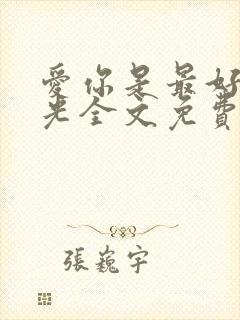 愛你是最好
光全文免費
張巍宇